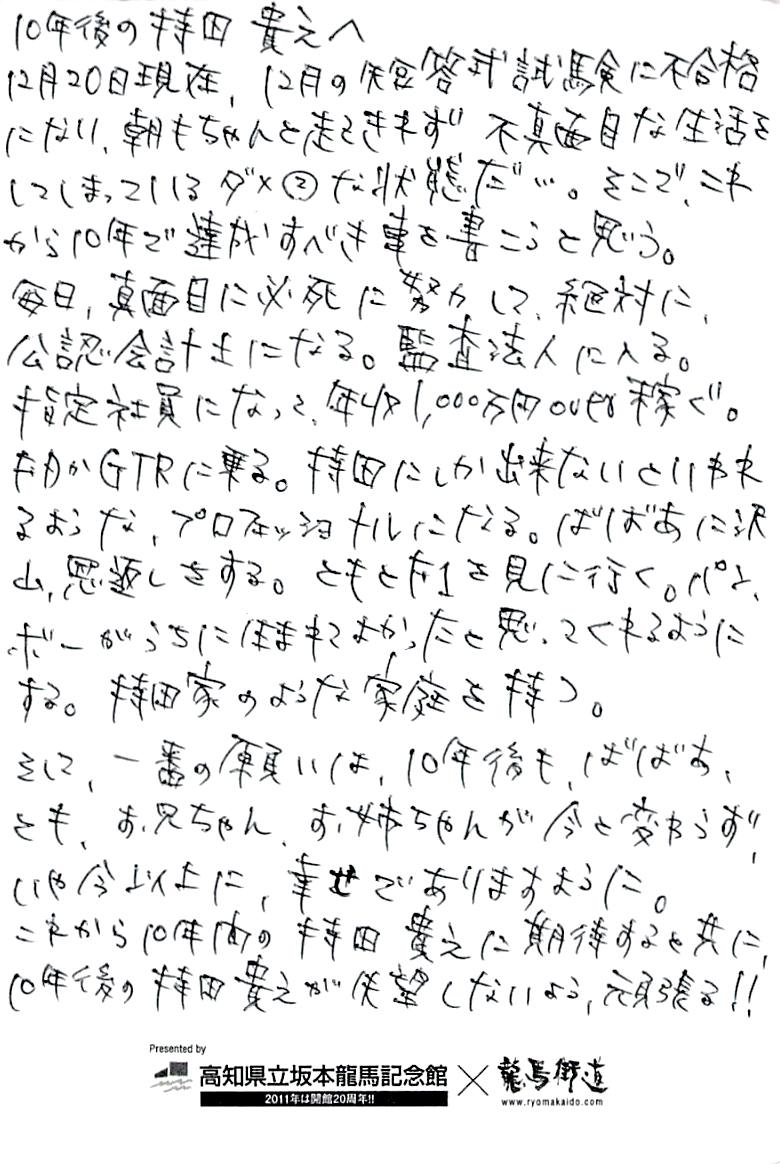 10年後の持田 貴之へ
12月20日現在, 12月の短答式試験に不合格
になり、朝もちゃんと起ききれず 不真面目な生活を
してしまっている ダメ② な状態だ…。そこで、これ
から10年で達成すべき事を書こうと思う。
毎日, 真面目に必死に努力して、絶対に、
公認会計士になる。監査法人に入る。
指定社員になって、年収1,000万円over稼ぐ。
GTRに乗る。持田にしか出来ないといわれ
るような、プロフェッショナルになる。ばばあに沢
山、恩返しをする。ともと を見に行く。パン、
ボーがうちに生まれてよかったと思ってくれるように
する。持田家のような家庭を持つ。
そして、一番の願いは、10年後も、ばばあ、
とも、お兄ちゃん、お姉ちゃんが今と変わらず、
いや今以上に、幸せでありますように。
これから10年間の 持田 貴之に期待すると共に、
10年後の持田貴之が失望しないよう、頑張る!!
Presented by
高知県立坂本龍馬記念館 × 龍馬街道
2011年は開館20周年!! www.ryomakaido.com